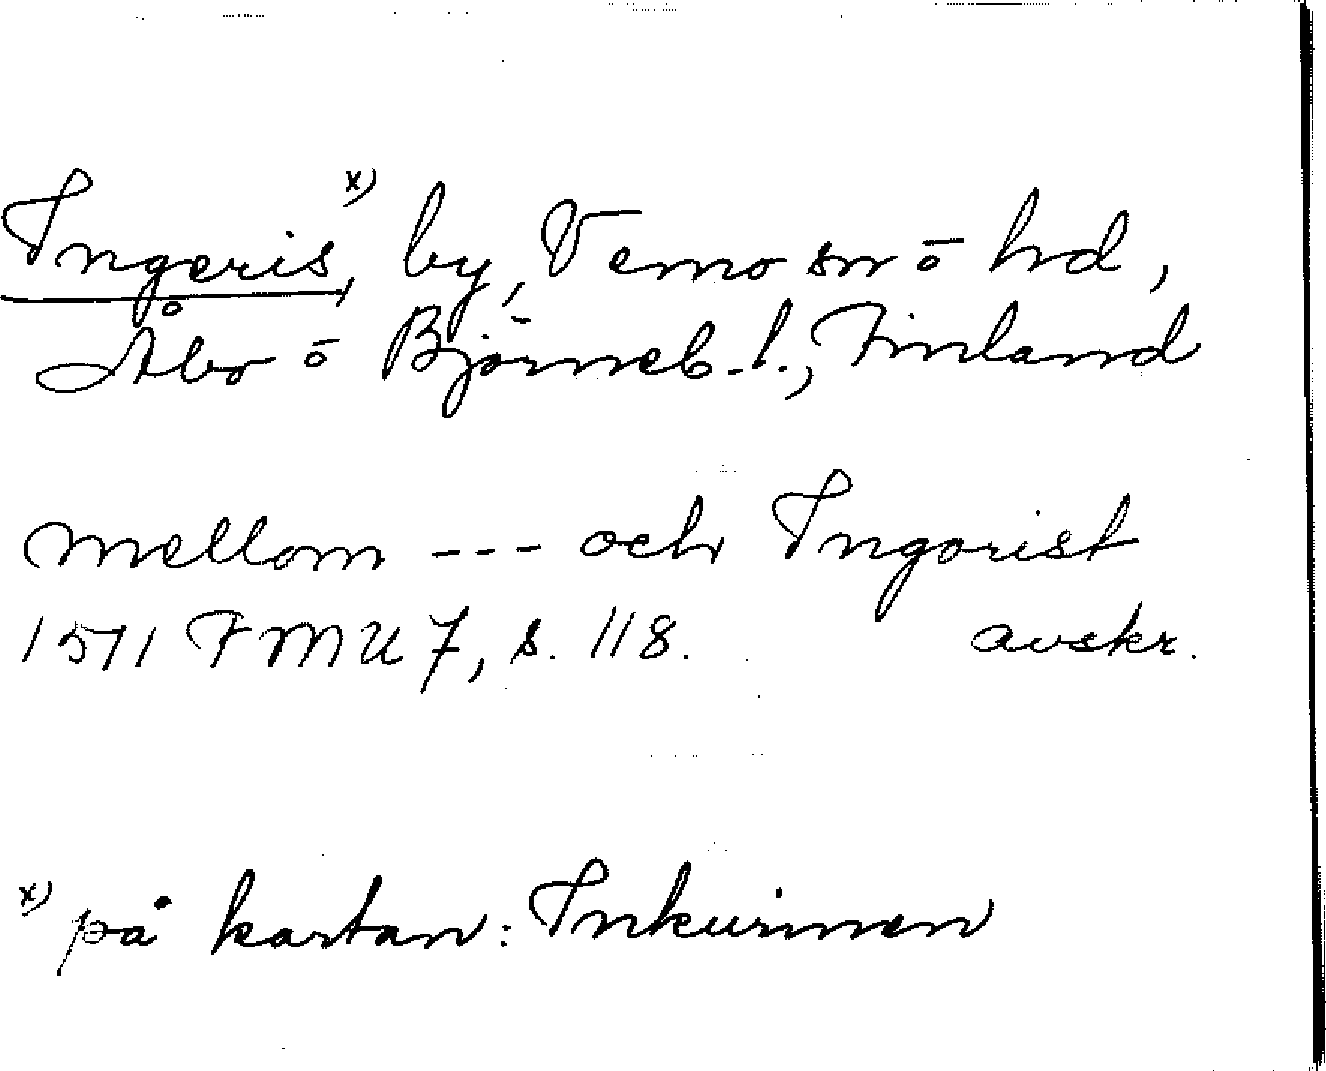 Ingeris, x) by, Vemo sn ō hd,
Åbo ō Björneb. l., Finland
mellom --- och Ingorist
1571 FMU 7, s. 118. avskr.
x) på kartan: Inkurinen